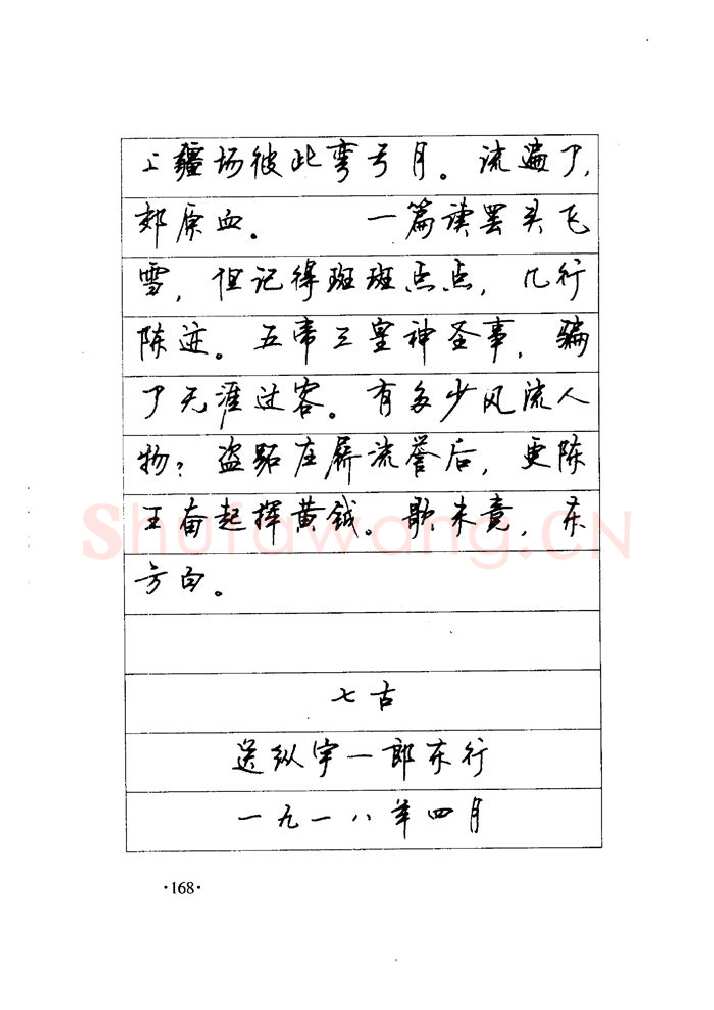 上疆场彼此弯弓月。流遍了,
郊原血。 一篇读罢头飞
雪，但记得斑斑点点，几行
陈迹。五帝三皇神圣事，骗
了无涯过客。有多少风流人
物？盗跖庄屩流誉后，更陈
王奋起挥黄钺。歌未竟，东
方白。
七古
送纵宇一郎东行
一九一八年四月
·168·
Shufawang.CN